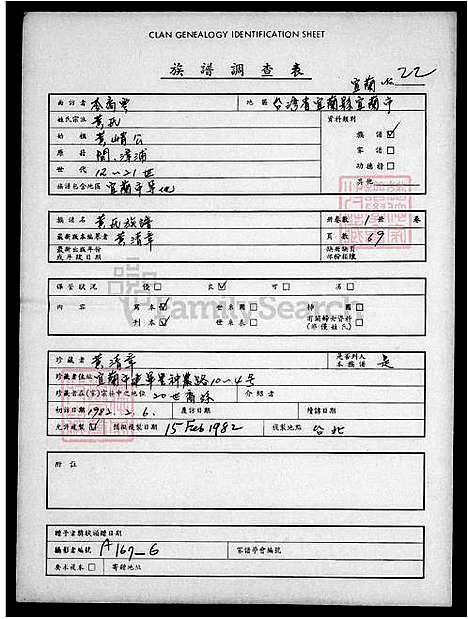 CLAN GENEALOGY IDENTIFICATION SHEET
族譜調查表
宜蘭 No 22
面訪者 地區 台灣省宜蘭縣宜蘭市
姓氏宗派 黃氏 資料類別
始祖 黃峭公 族譜
原籍 閩、漳浦 家譜
世代 12~21世 功德榜
族譜包含地區 宜蘭市 其他
族譜名 黃氏族譜 冊卷數 1 冊 卷
最新版本編纂者 黃清章 頁數 69
最新出版年份 缺冊缺頁
或年終日期
保管狀況 優 良 可 劣
內容 寫本 世系圖 排圖
刊本 世系表 有關婦女資料
珍藏者 黃清章 是否列入本族譜 是
珍藏者住址 宜蘭市建軍里神農路10-4号
珍藏者在(宗)宗祠中之地位 20世裔孫 介紹者
初訪日期 1982.2.6. 覆訪日期 續請日期
允許複製 擬複製日期 15 Feb 1982 複製地點 台北
附註
贈予者獎狀頒贈日期
攝影者編號 A167-6 家譜學會編號
要求複本 寄贈地址
FamilySearch